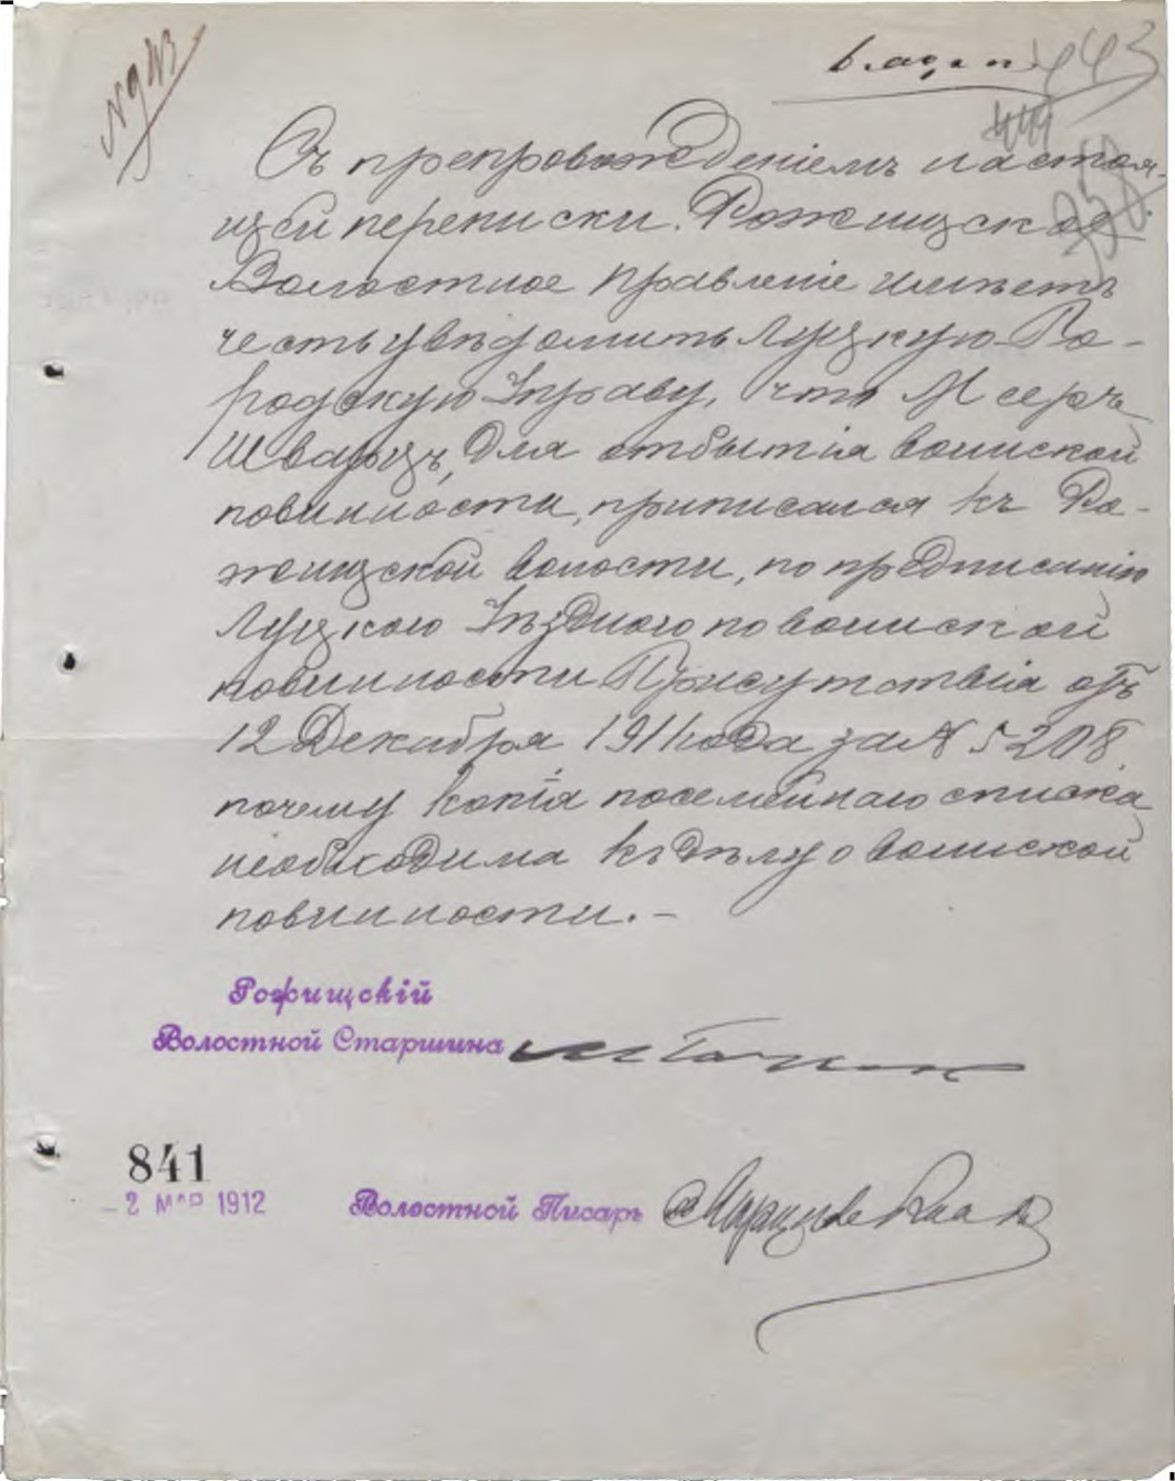 443
Съ препровожденіемъ настоя-
щей переписки. Рожищское
Волостное Правленіе имѣетъ
честь увѣдомить Луцкую Го-
родскую Управу, что Мееръ
Шварцъ, для отбытія воинской
повинности, приписался къ Ро-
жищской волости, по предписанію
Луцкого Уѣзднаго по воинской
повинности Присутствія отъ
12 Декабря 1911 года за № 5208,
почему копія посемейнаго списка
необходима къ дѣлу о воинской
повинности.-
Рожищскій
Волостной Старшина
841
-2 МАР 1912
Волостной Писарь